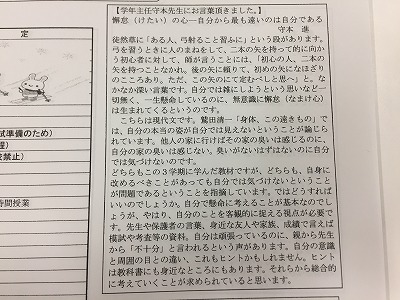 定
試準備のため）
程）
校禁止）
時間授業
【学年主任守本先生にお言葉頂きました。】
懈怠（けたい）の心―自分から最も遠いのは自分である
守本　進
徒然草に「ある人、弓射ること習ふに」という段があります。
弓を習うときに人のまねをして、二本の矢を持って的に向か
う初心者に対して、師が言うことには、「初心の人、二本の
矢を持つことなかれ。後の矢に頼りて、初めの矢になほざり
のこころあり。ただ、この矢にて定むべしと思へ」と。なか
なか深い言葉です。自分では雑にしようという思いなど一
切無く、一生懸命しているのに、無意識に懈怠（なまけ心）
は生まれてくるというのです。
こちらは現代文です。鷲田清一「身体、この遠きもの」で
は、自分の本当の姿が自分では見えないということが論じら
れています。他人の家に行けばその家の臭いは感じるのに、
自分の家の臭いは感じない。臭いがないはずはないのに自分
では気づけないのです。
どちらもこの３学期に学んだ教材ですが、どちらも、自身に
改めるべきことがあっても自分では気づけないということ
が問題であるということを指摘しています。ではどうすれば
いいのでしょうか。自分で懸命に考えることが基本なのでし
ょうが、やはり、自分のことを客観的に捉える視点が必要で
す。先生や保護者の言葉、身近な友人や家族、成績で言えば
模試や考査等の資料。自分は頑張っているのに、親から先生
から「不十分」と言われるという声があります。自分の意識
と周囲の目との違い、これもヒントかもしれません。ヒント
は教科書にも身近なところにもあります。それらから総合的
に考えていくことが求められていると思います。